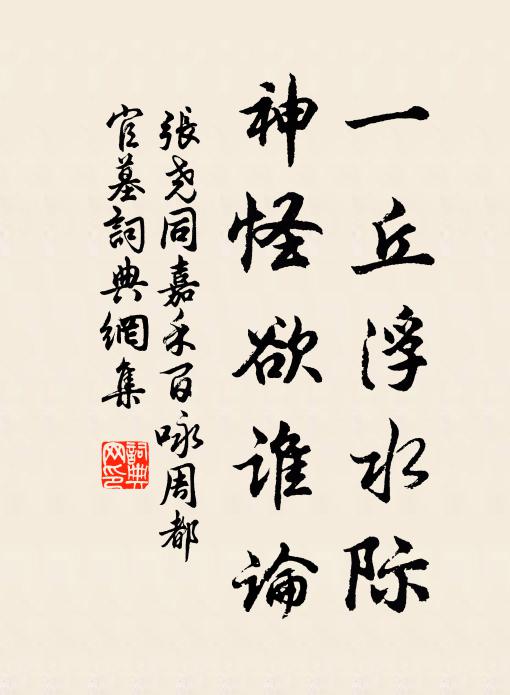 一丘浮水际
神怪欲谁論
張尧同嘉禾百咏周都
官墓詞典網集
詞典
网印